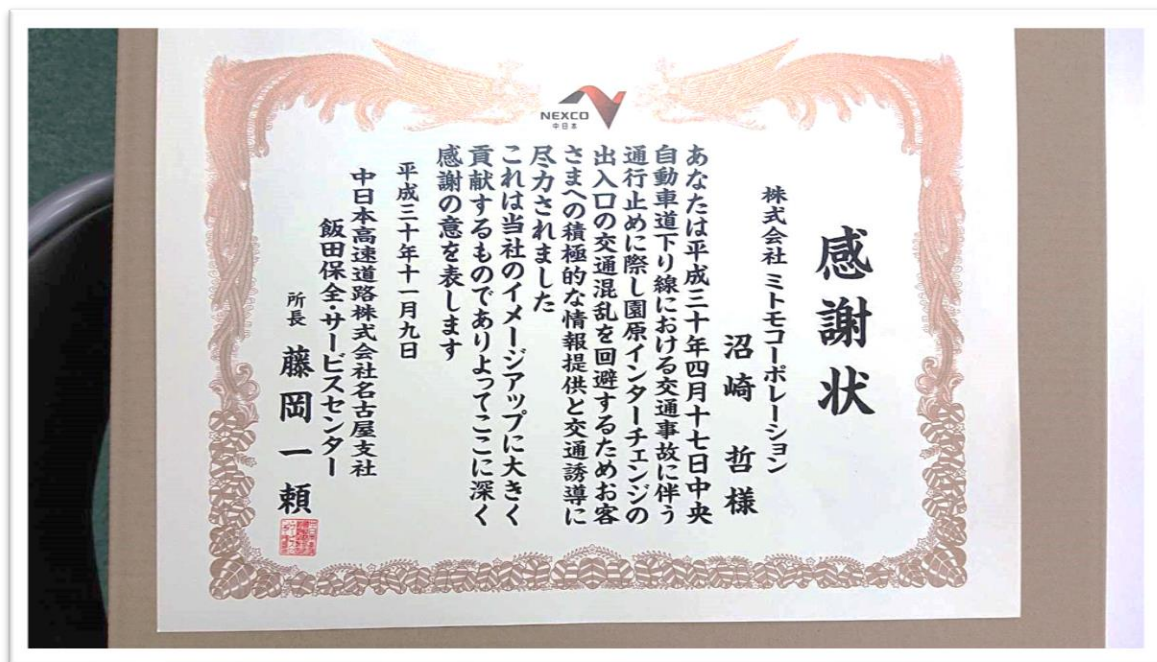 NEXCO
中日本
感謝状
株式会社 ミトモコーポレーション
沼崎 哲 様
あなたは平成三十年四月十七日中央
自動車道下り線における交通事故に伴う
通行止めに際し園原インターチェンジの
出入口の交通混乱を回避するためお客
さまへの積極的な情報提供と交通誘導に
尽力されました
これは当社のイメージアップに大きく
貢献するものでありよってここに深く
感謝の意を表します
平成三十年十一月九日
中日本高速道路株式会社名古屋支社
飯田保全・サービスセンター
所長 藤岡一頼